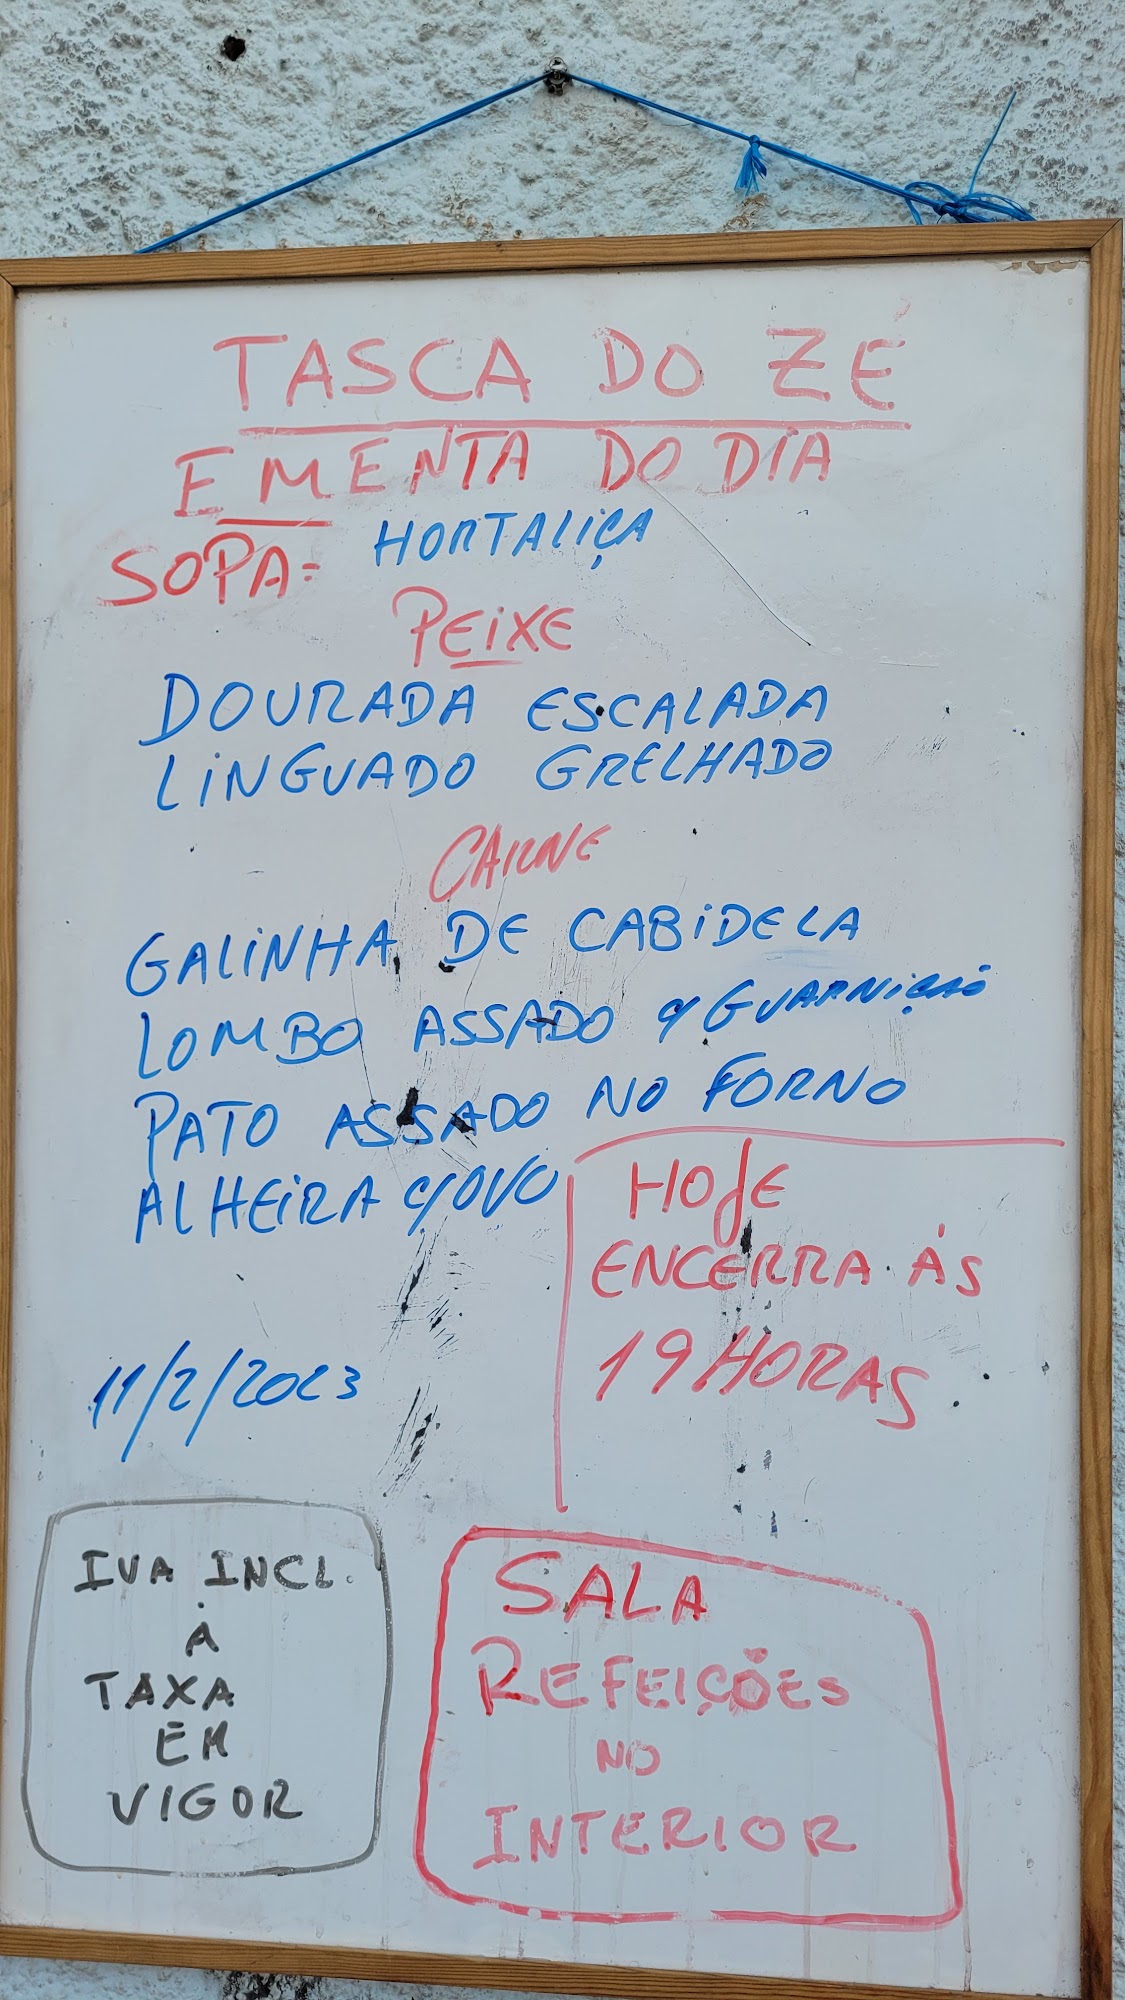 TASCA DO ZÉ
EMENTA DO DIA
SOPA= HORTALIÇA
PEIXE
DOURADA ESCALADA
LINGUADO GRELHADO
CARNE
GALINHA DE CABIDELA
LOMBO ASSADO C/GUARNIÇÃO
PATO ASSADO NO FORNO
ALHEIRA C/OVO
HOJE
ENCERRA ÀS
19 HORAS
11/2/2023
IVA INCL.
À
TAXA
EM
VIGOR
SALA
REFEIÇÕES
NO
INTERIOR